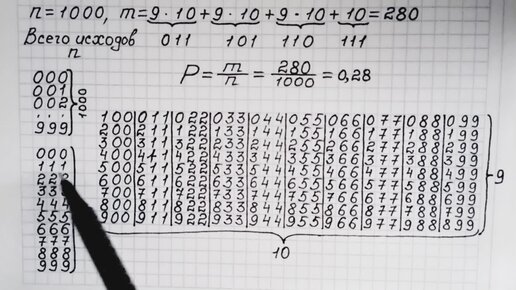 n=1000, m=9·10+9·10+9·10+10=280
Всего исходов 011 101 110 111
n
P = m/n = 280/1000 = 0,28
000
001
002
...
999
1000
000
111
222
333
444
555
666
777
888
999
100|011|022|033|044|055|066|077|088|099
200|211|122|133|144|155|166|177|188|199
300|311|322|233|244|255|266|277|288|299
400|411|422|433|344|355|366|377|388|399
500|511|522|533|544|455|466|477|488|499
600|611|622|633|644|655|566|577|588|599
700|711|722|733|744|755|766|677|688|699
800|811|822|833|844|855|866|877|788|799
900|911|922|933|944|955|966|977|988|899
9
10